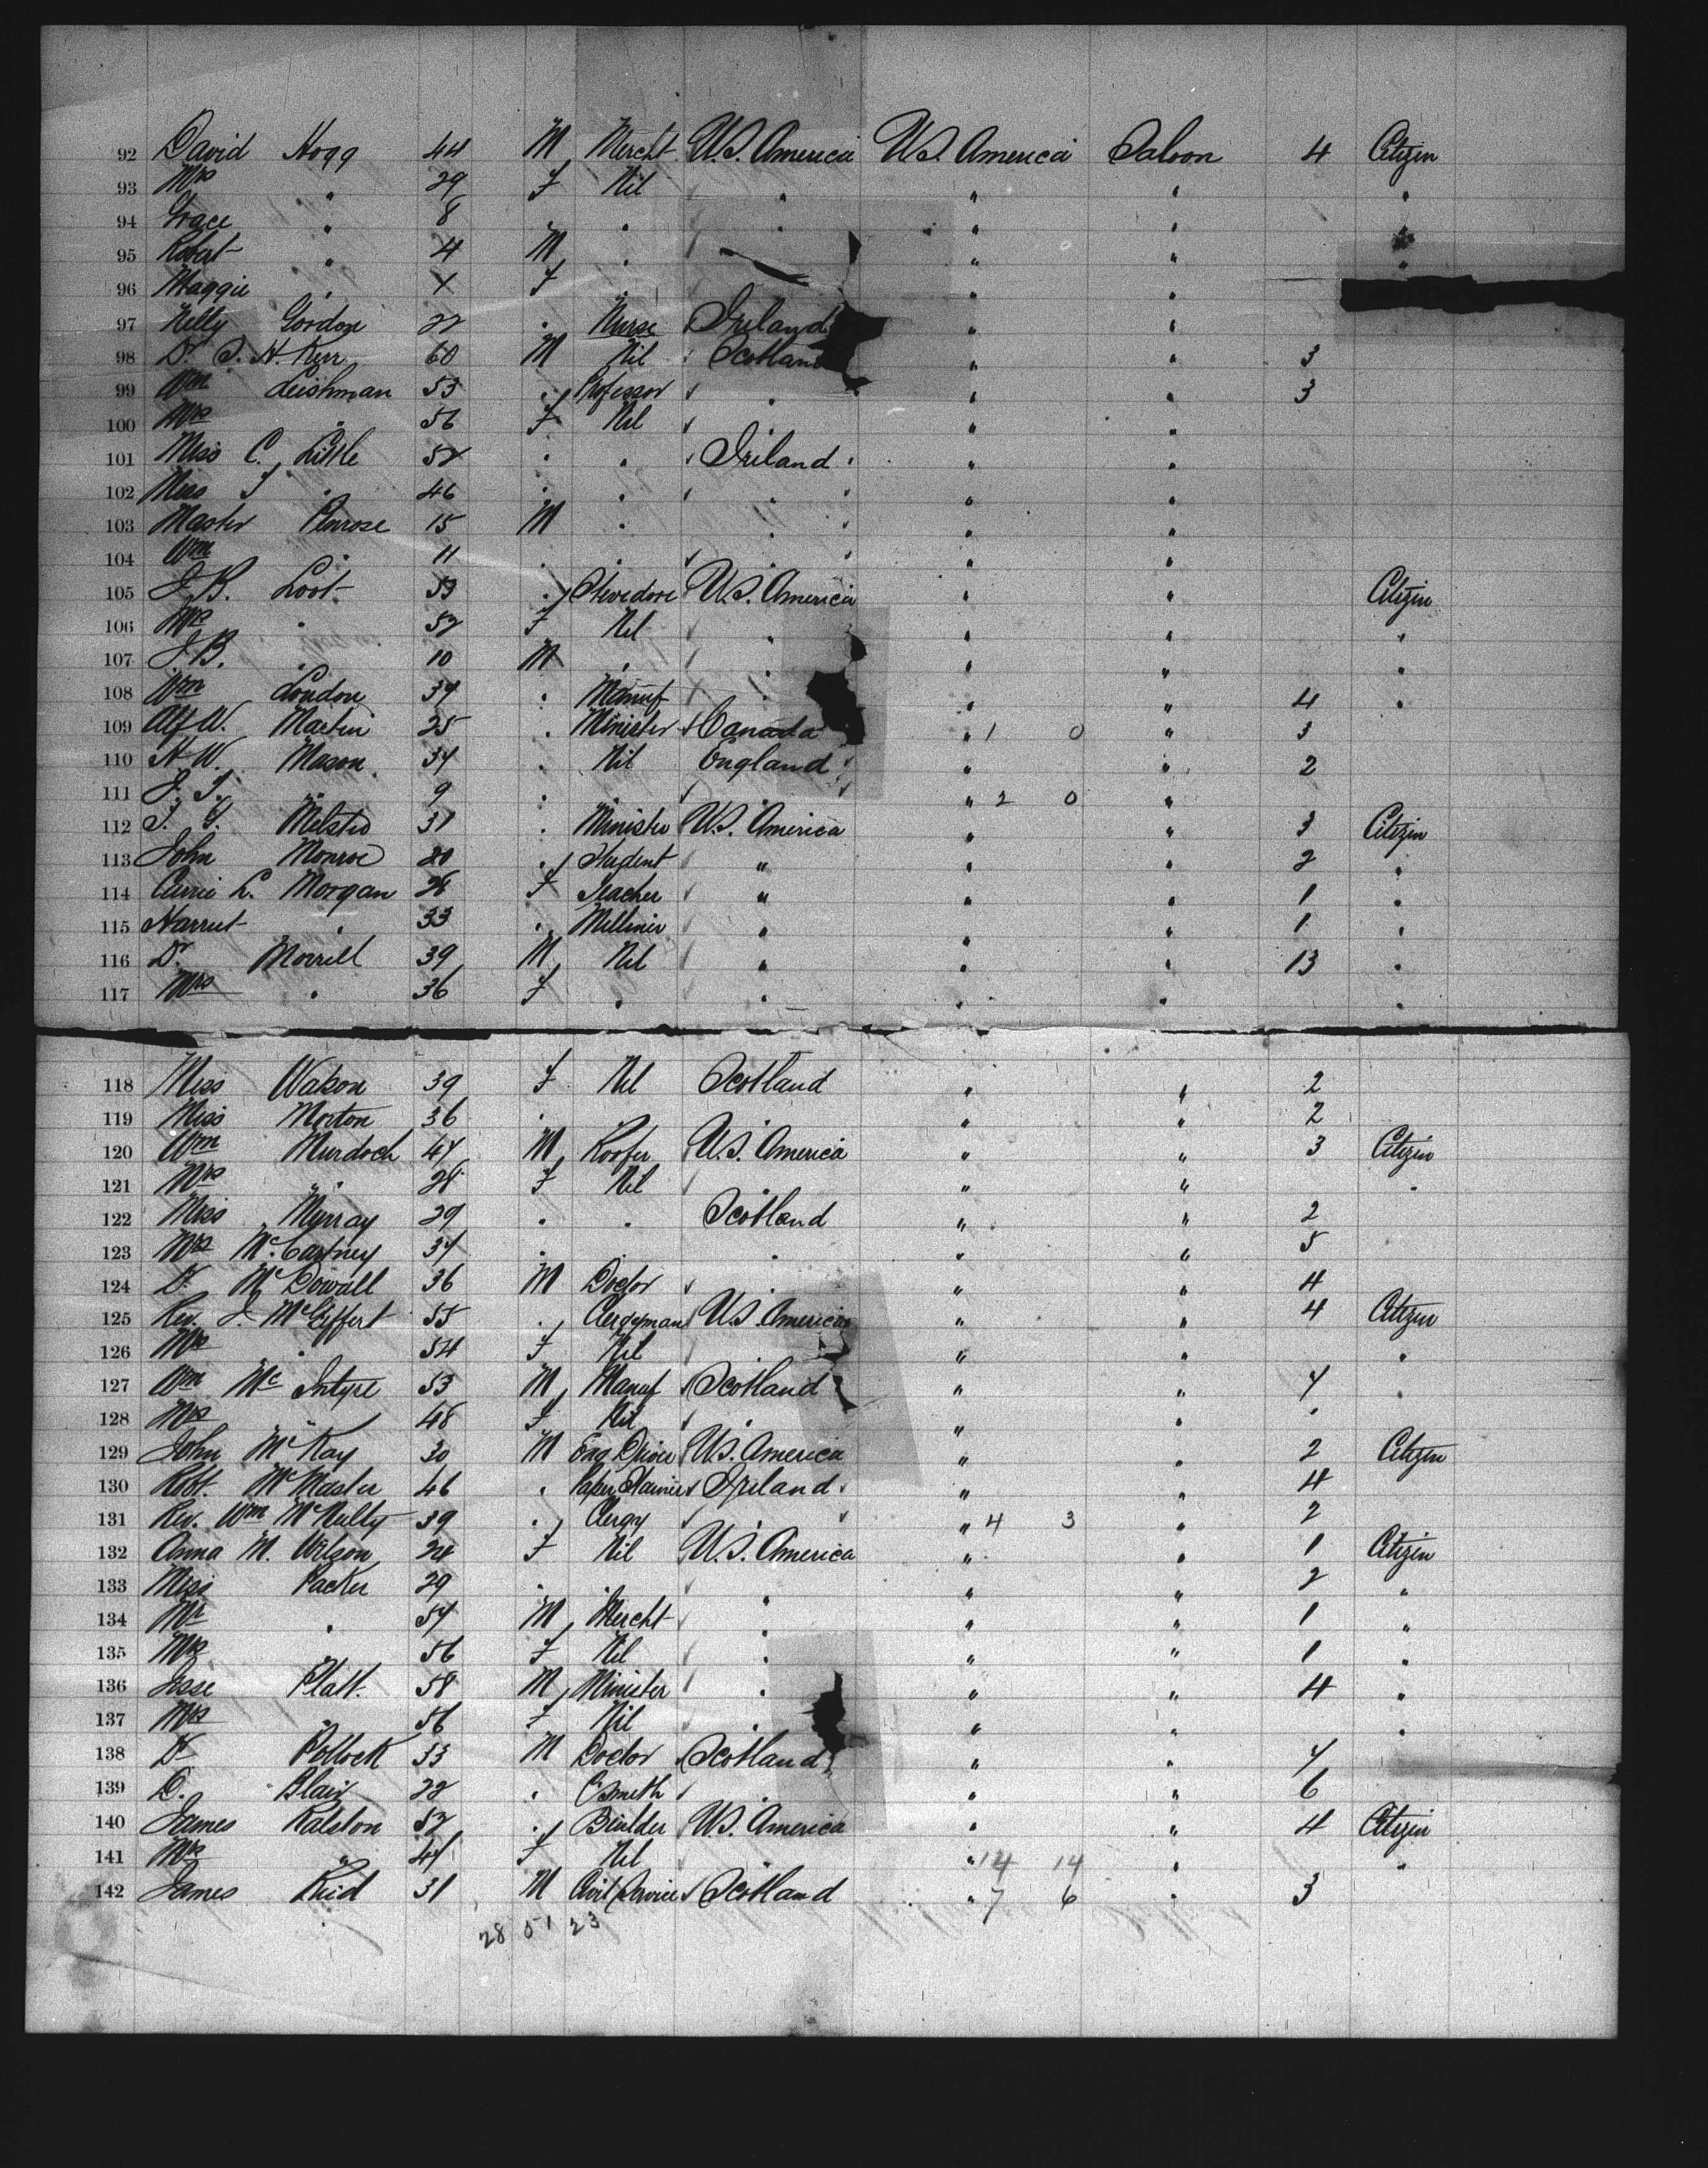 92 David Hogg 44 M Mercht U.S. America U.S. America Saloon 4 Citizen
93 Mrs " 29 F Nil " " " "
94 Grace " 8 " " " " "
95 Robert " 4 M " " " "
96 Maggie " F " "
97 Nelly Gordon 22 " Nurse Ireland " "
98 Dr. H. Kerr 60 M Nil Scotland " " 3
99 Wm Leishman 53 " Professor " " " 3
100 Mrs " 56 F Nil " "
101 Miss C. Little 52 " " Ireland " "
102 Miss " 46 " " " " "
103 Master Penrose 15 M " " " "
104 Wm " 11 " " " "
105 J. B. 53 " Stevedore U.S. America " " Citizen
106 Mrs " 52 F Nil " " " "
107 J. B. " 10 M " " " " "
108 Wm London 37 " Manuf " " 4 "
109 Alf W. Martin 25 " Minister Canada " 1 0 " 3
110 H. W. Mason 34 " Nil England " " 2
111 " 9 " " " " 2 0 "
112 31 " Minister U.S. America " " 3 Citizen
113 John Monroe 20 " Student " " " 2 "
114 Carrie L. Morgan 28 F Teacher " " " 1 "
115 Harriet " 33 " Milliner " " " 1 "
116 Dr. Morrell 39 M Nil " " " 13 "
117 Mrs " 36 F " " " " "
118 Miss Watson 39 F Nil Scotland " " 2
119 Miss Morton 36 " " " 2
120 Wm Murdoch 47 M Roofer U.S. America " " 3 Citizen
121 Mrs " 28 F Nil " " " "
122 Miss Murray 29 " " Scotland " " 2
123 Mrs McCartney 37 " " " " " 5
124 Dr. McDowall 36 M Doctor " " " 4
125 Rev. J. McGiffert 55 " Clergyman U.S. America " " 4 Citizen
126 Mrs " 54 F Nil " " " "
127 Wm McIntyre 53 M Manuf Scotland " " 7 "
128 Mrs " 48 F Nil " " " "
129 John McKay 30 M Eng Driver U.S. America " " 2 Citizen
130 Robt. McMaster 46 " Paper Stainer Ireland " " 4
131 Rev. Wm McNulty 39 " Clergy " 4 3 " 2
132 Anna M. Wilson 24 F Nil U.S. America " " 1 Citizen
133 Miss Packer 29 " " " " " 2 "
134 Mr " 57 M Mercht " " " 1 "
135 Mrs " 56 F Nil " " " 1 "
136 Jesse Platt. 58 M Minister " " " 4 "
137 Mrs " 56 F Nil " " " "
138 Dr Pollock 33 M Doctor Scotland " " 7
139 D. Blair 22 " " " " 6
140 James Ralston 52 " Builder U.S. America " " 4 Citizen
141 Mrs " 47 F Nil " " 14 14 " "
142 James Reid 31 M Civil Service Scotland " 7 6 " 3
28 51 23